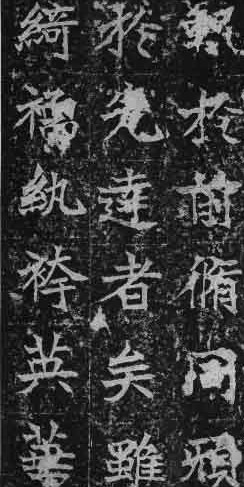 軌於前脩同
於先達者矣雖
綺襦紈袴英華